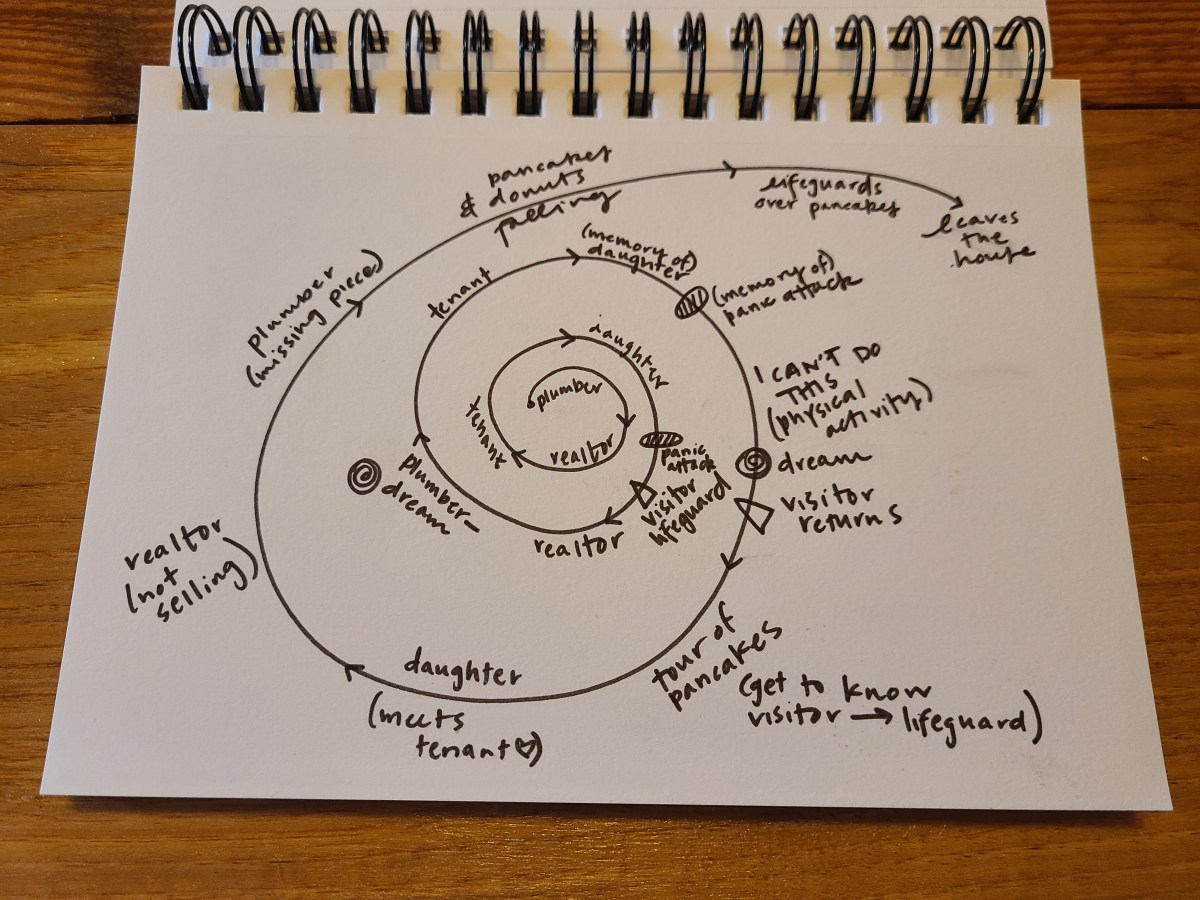 plumber
realtor
tenant
daughter
panic
attack
visitor
lifeguard
realtor
plumber—
tenant
(memory of)
daughter
(memory of)
panic attack
I CAN'T DO
THIS
(physical
activity)
dream
visitor
returns
tour of
pancakes
(get to know
visitor → lifeguard)
daughter
(meets
tenant♡)
realtor
(not
selling)
dream
plumber
(missing piece)
pancakes
& donuts
falling
lifeguards
over pancakes
leaves
the
house